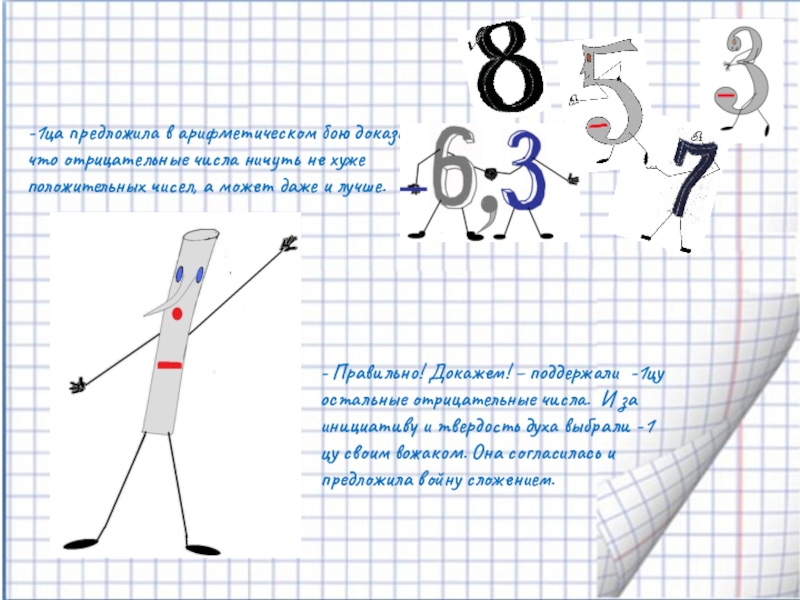 8 5 3
-1ца предложила в арифметическом бою
что отрицательные числа ничуть не хуже
положительных чисел, а может даже и лучше.
-6,3
7
- Правильно! Докажем! – поддержали -1цу
остальные отрицательные числа. И за
инициативу и твердость духа выбрали -1
цу своим вожаком. Она согласилась и
предложила войну сложением.